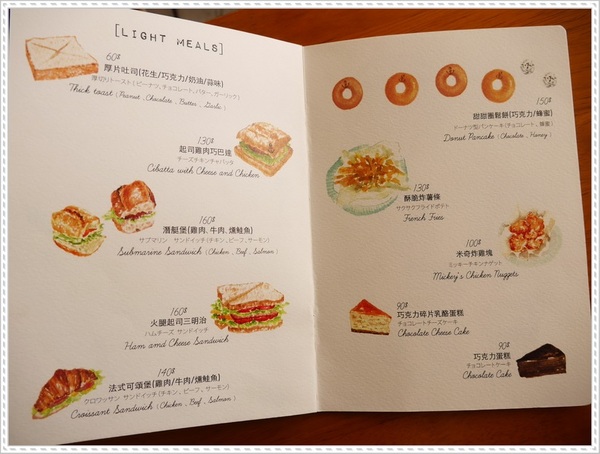 [LIGHT MEALS]
60元
厚片吐司(花生/巧克力/奶油/蒜味)
厚切りトースト(ピーナツ、チョコレート、バター、ガーリック)
Thick toast (Peanut, Chocolate, Butter, Garlic)
130元
起司雞肉巧巴達
チーズチキンチャバッタ
Cibatta with Cheese and Chicken
160元
潛艇堡(雞肉、牛肉、燻鮭魚)
サブマリン サンドイッチ(チキン、ビーフ、サーモン)
Submarine Sandwich (Chicken, Beef, Salmon)
160元
火腿起司三明治
ハムチーズ サンドイッチ
Ham and Cheese Sandwich
140元
法式可頌堡(雞肉/牛肉/燻鮭魚)
クロワッサン サンドイッチ(チキン、ビーフ、サーモン)
Croissant Sandwich (Chicken, Beef, Salmon)
150元
甜甜圈鬆餅(巧克力/蜂蜜)
ドーナツ型パンケーキ(チョコレート、蜂蜜)
Donut Pancake (Chocolate, Honey)
130元
酥脆炸薯條
サクサクフライドポテト
French Fries
100元
米奇炸雞塊
ミッキーチキンナゲット
Mickey's Chicken Nuggets
90元
巧克力碎片乳酪蛋糕
チョコレートチーズケーキ
Chocolate Cheese Cake
90元
巧克力蛋糕
チョコレートケーキ
Chocolate Cake